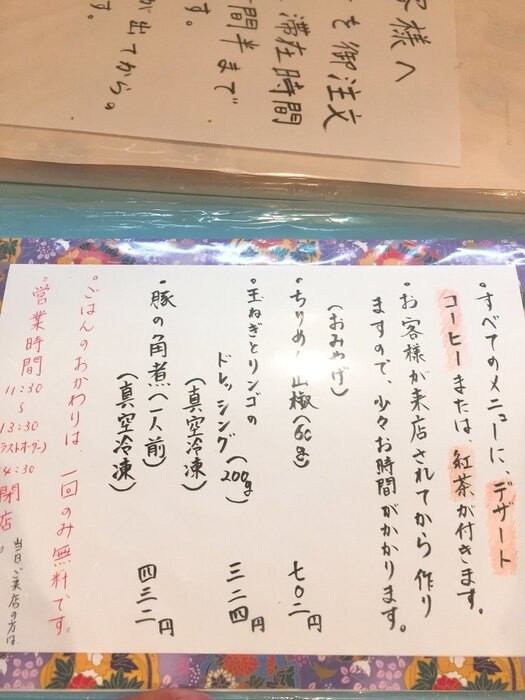 客様へ
を御注文
滞在時間
間半まで
す。
が出てから。
・すべてのメニューに、デザート
コーヒーまたは、紅茶が付きます。
・お客様が来店されてから作り
ますので、少々お時間がかかります。
(おみやげ)
・ちりめん山椒(60g) 七〇二円
・玉ねぎとリンゴの
ドレッシング(200g) 三二四円
(真空冷凍)
・豚の角煮(一人前) 四三二円
(真空冷凍)
・ごはんのおかわりは、一回のみ無料です。
・営業時間
11:30
〜
13:30
(ラストオーダー)
4:30
閉店
当日ご来店の方は